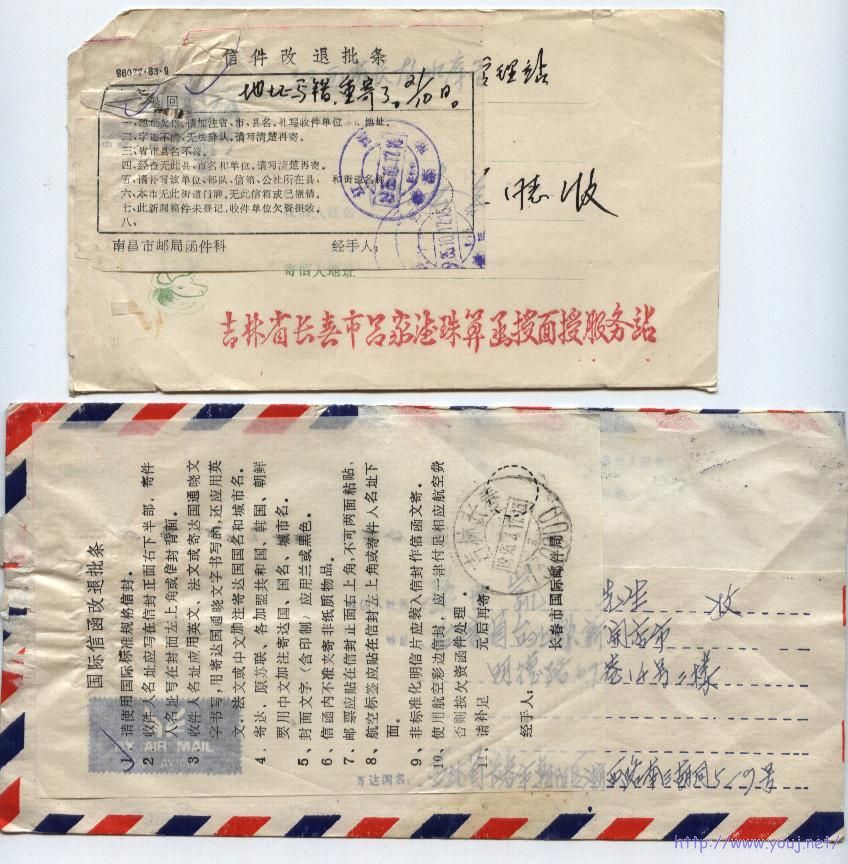 信件改退批条
86077·83·9
地址写错,重寄了。21/10日。
退回
管理站
一、地址欠详,请加注省、市、县名,补写收件单位 地址。
二、字迹不清,无法辨认,请写清楚再寄。
三、省市县名不符。
四、经查无此县、市名和单位,请写清楚再寄。
五、请补写该单位、部队、信箱、公社所在县、 和街道名称
六、本市无此街道门牌,无此信箱或已撤销。
七、此新闻稿件未登记,收件单位欠资拒收。
八、
同志收
南昌市邮局函件科 经手人:
寄信人地址
吉林省长春市吕家滢珠算函授面授服务站
国际信函改退批条
1 请使用国际标准规格信封。
2 收件人名址应写在信封正面右下半部,寄件
人名址写在封面左上角或信封背面。
3 收件人名址应用英文、法文或寄达国通晓文
字书写,用寄达国通晓文字书写的,还应用英
文、法文或中文加注寄达国国名和城市名。
4.寄达、原苏联、各加盟共和国、韩国、朝鲜
要用中文加注寄达国、国名、城市名。
5、封面文字(含印制),应用兰或黑色。
6、信函内不准夹寄非纸质物品。
7、邮票应贴在信封正面右上角,不可两面粘贴,
8、航空标签应贴在信封左上角或寄件人名址下
面。
9、非标准化明信片应装入信封作信函交寄。
10、使用航空彩边信封,应一律付足相应航空费
否则按欠资函件处理
11 请补足 元后再寄,
经手人: 长春市国际邮件局
吉林长春
BY AIR MAIL
PAR AVION
先生 收
明德路
巷4号二樓
寄达国名:
http://www.youj.net/